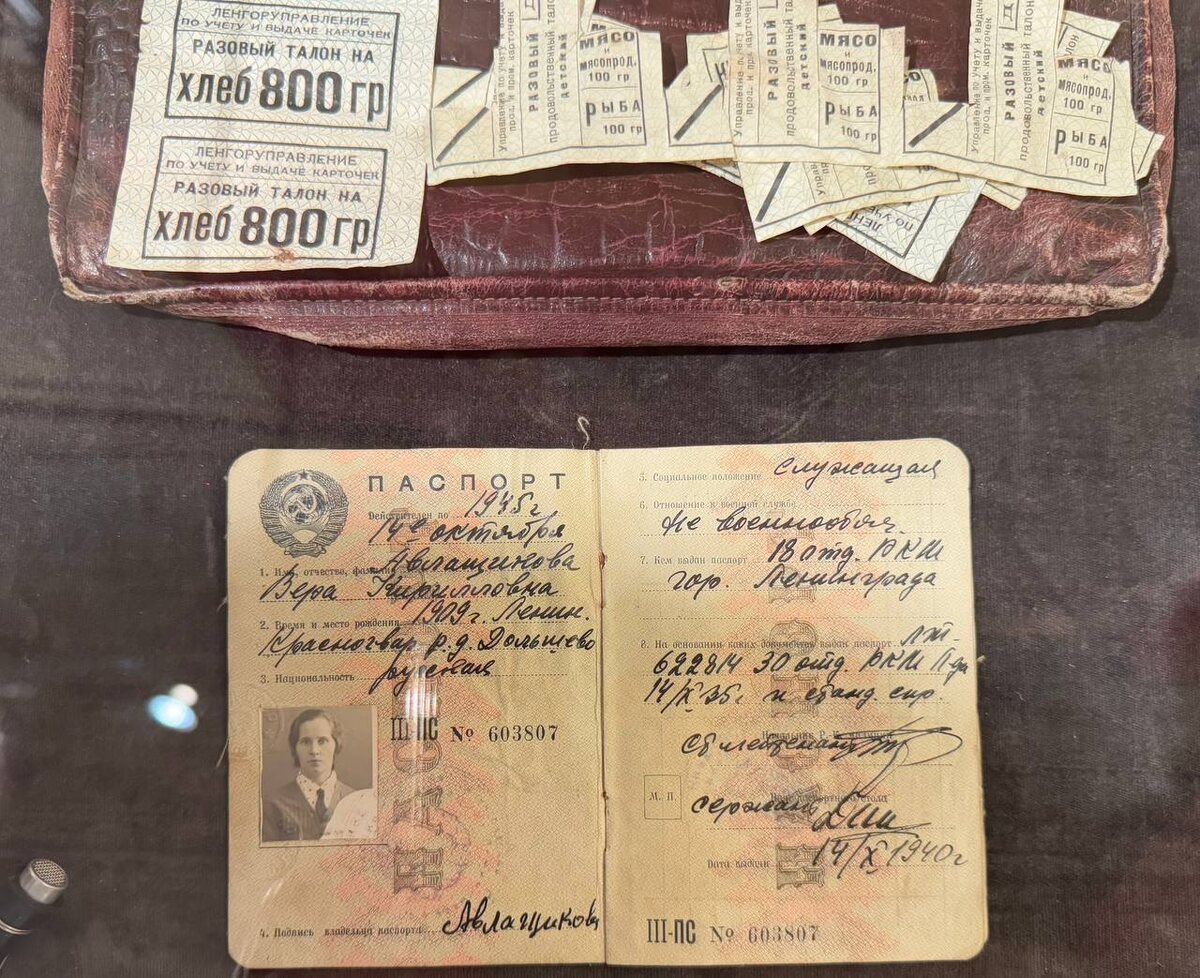 ЛЕНГОРУПРАВЛЕНИЕ
ПО УЧЕТУ И ВЫДАЧЕ КАРТОЧЕК
РАЗОВЫЙ ТАЛОН НА
ХЛЕБ 800 ГР
ЛЕНГОРУПРАВЛЕНИЕ
ПО УЧЕТУ И ВЫДАЧЕ КАРТОЧЕК
РАЗОВЫЙ ТАЛОН НА
ХЛЕБ 800 ГР
Управление по учету и
прод. и пром. карточек
РАЗОВЫЙ
продовольственный талон
детский
МЯСО
и
мясопрод.
100 гр
РЫБА
100 гр
Управление по учету и
прод. и пром. карточек
РАЗОВЫЙ
продовольственный талон
детский
МЯСО
и
мясопрод.
100 гр
РЫБА
100 гр
Управление по учету и выдаче
прод. и пром. карточек
РАЗОВЫЙ
продовольственный талон
детский
МЯСО
и
мясопрод.
100 гр
РЫБА
100 гр
ПАСПОРТ
Действителен по 1945 г.
14го октября
1. Имя, отчество, фамилия
Вера Кирилловна
2. Время и место рождения 1909 г. Ленин.
Красногвар. р. д.
3. Национальность русская
III-ПС № 603807
4. Подпись владельца паспорта
5. Социальное положение служащая
6. Отношение к военной службе
Не военнообяз.
7. Кем выдан паспорт 18 отд. РКМ
гор. Ленинграда
8. На основании каких документов выдан паспорт
622814 30 отд. РКМ
14/X 35г. и
сержант
М. П.
Дата выдачи 14/X 1940г
III-ПС № 603807